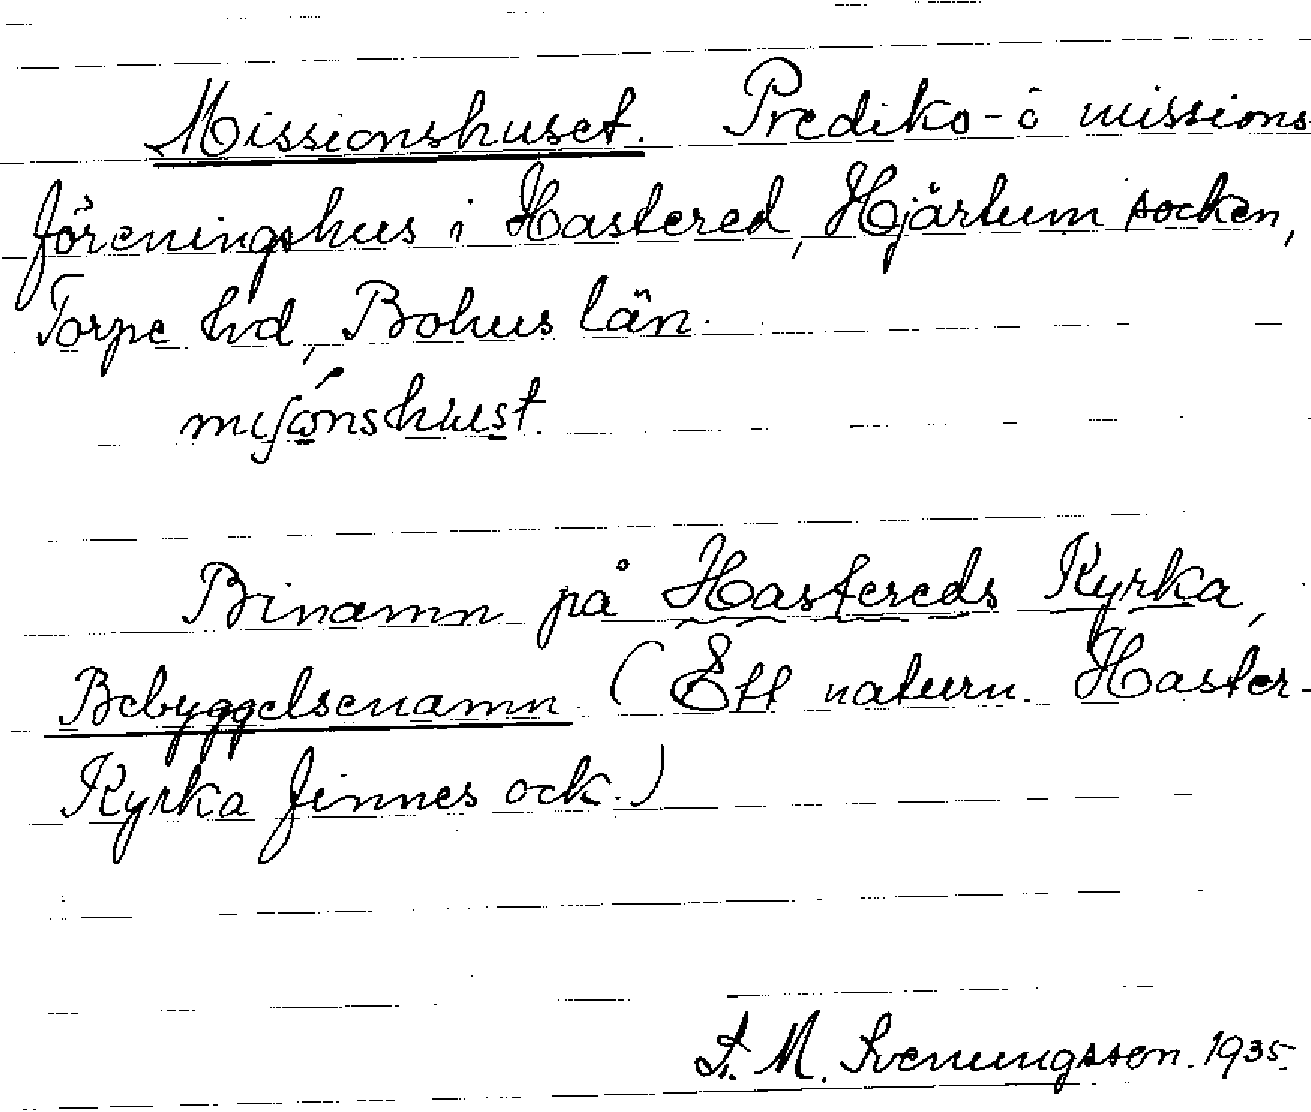 Missionshuset. Prediko- o missions
föreningshus i Hastered, Hjärtum socken,
Torpe hd, Bohus län.
Binamn på Hastereds Kyrka,
Bebyggelsenamn (Ett naturn. Haster-
Kyrka finnes ock.)
M. Svenungsson. 1935.